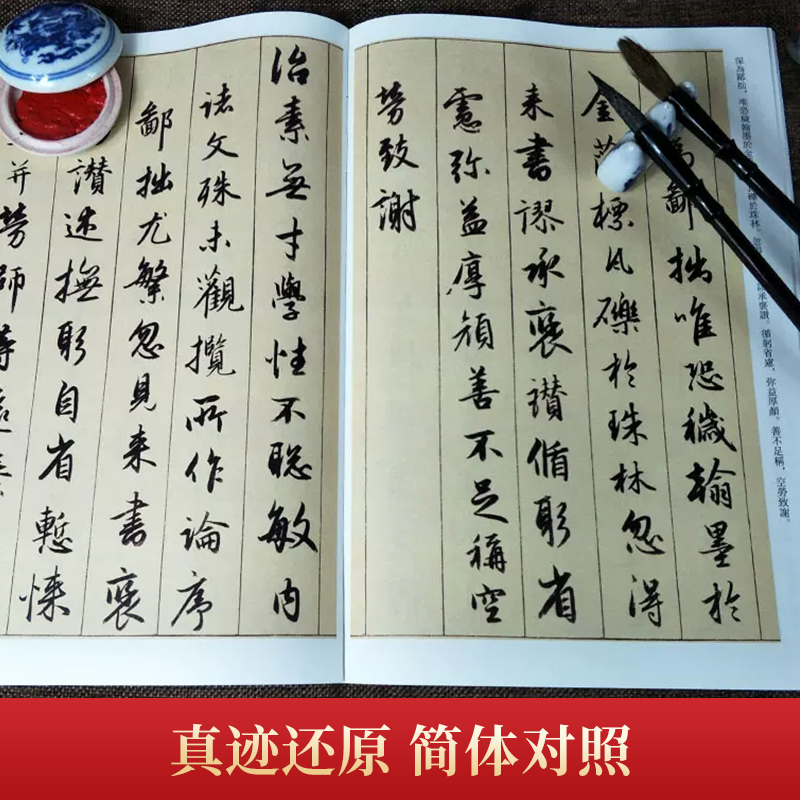 深為鄙拙，唯恐穢翰墨於金
礫於珠林。
承褒讃，循躬省慮，弥益厚顔。善不足稱，空勞致謝。
鄙拙唯恐穢翰墨於
金標瓦礫於珠林忽得
来書謬承褒讃循躬省
慮弥益厚顔善不足稱空
勞致謝
治素無才學性不聪敏内
諸文殊未觀攬所作論序
鄙拙尤繁忽見来書褒
讃述撫躬自省慙悚
并勞師等
真迹还原 简体对照